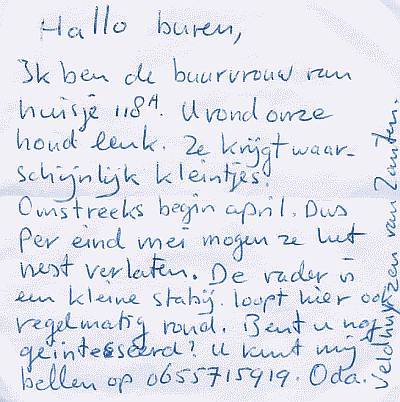 Hallo buren,
Ik ben de buurvrouw van
huisje 118A. U vond onze
hond leuk. Ze krijgt waar-
schijnlijk kleintjes.
Omstreeks begin april. Dus
per eind mei mogen ze het
nest verlaten. De vader is
een kleine stabij. loopt hier ook
regelmatig rond. Bent u nog
geïnteseerd? U kunt mij
bellen op 0655715919. Oda.
Veldhuyzen van Zanten.